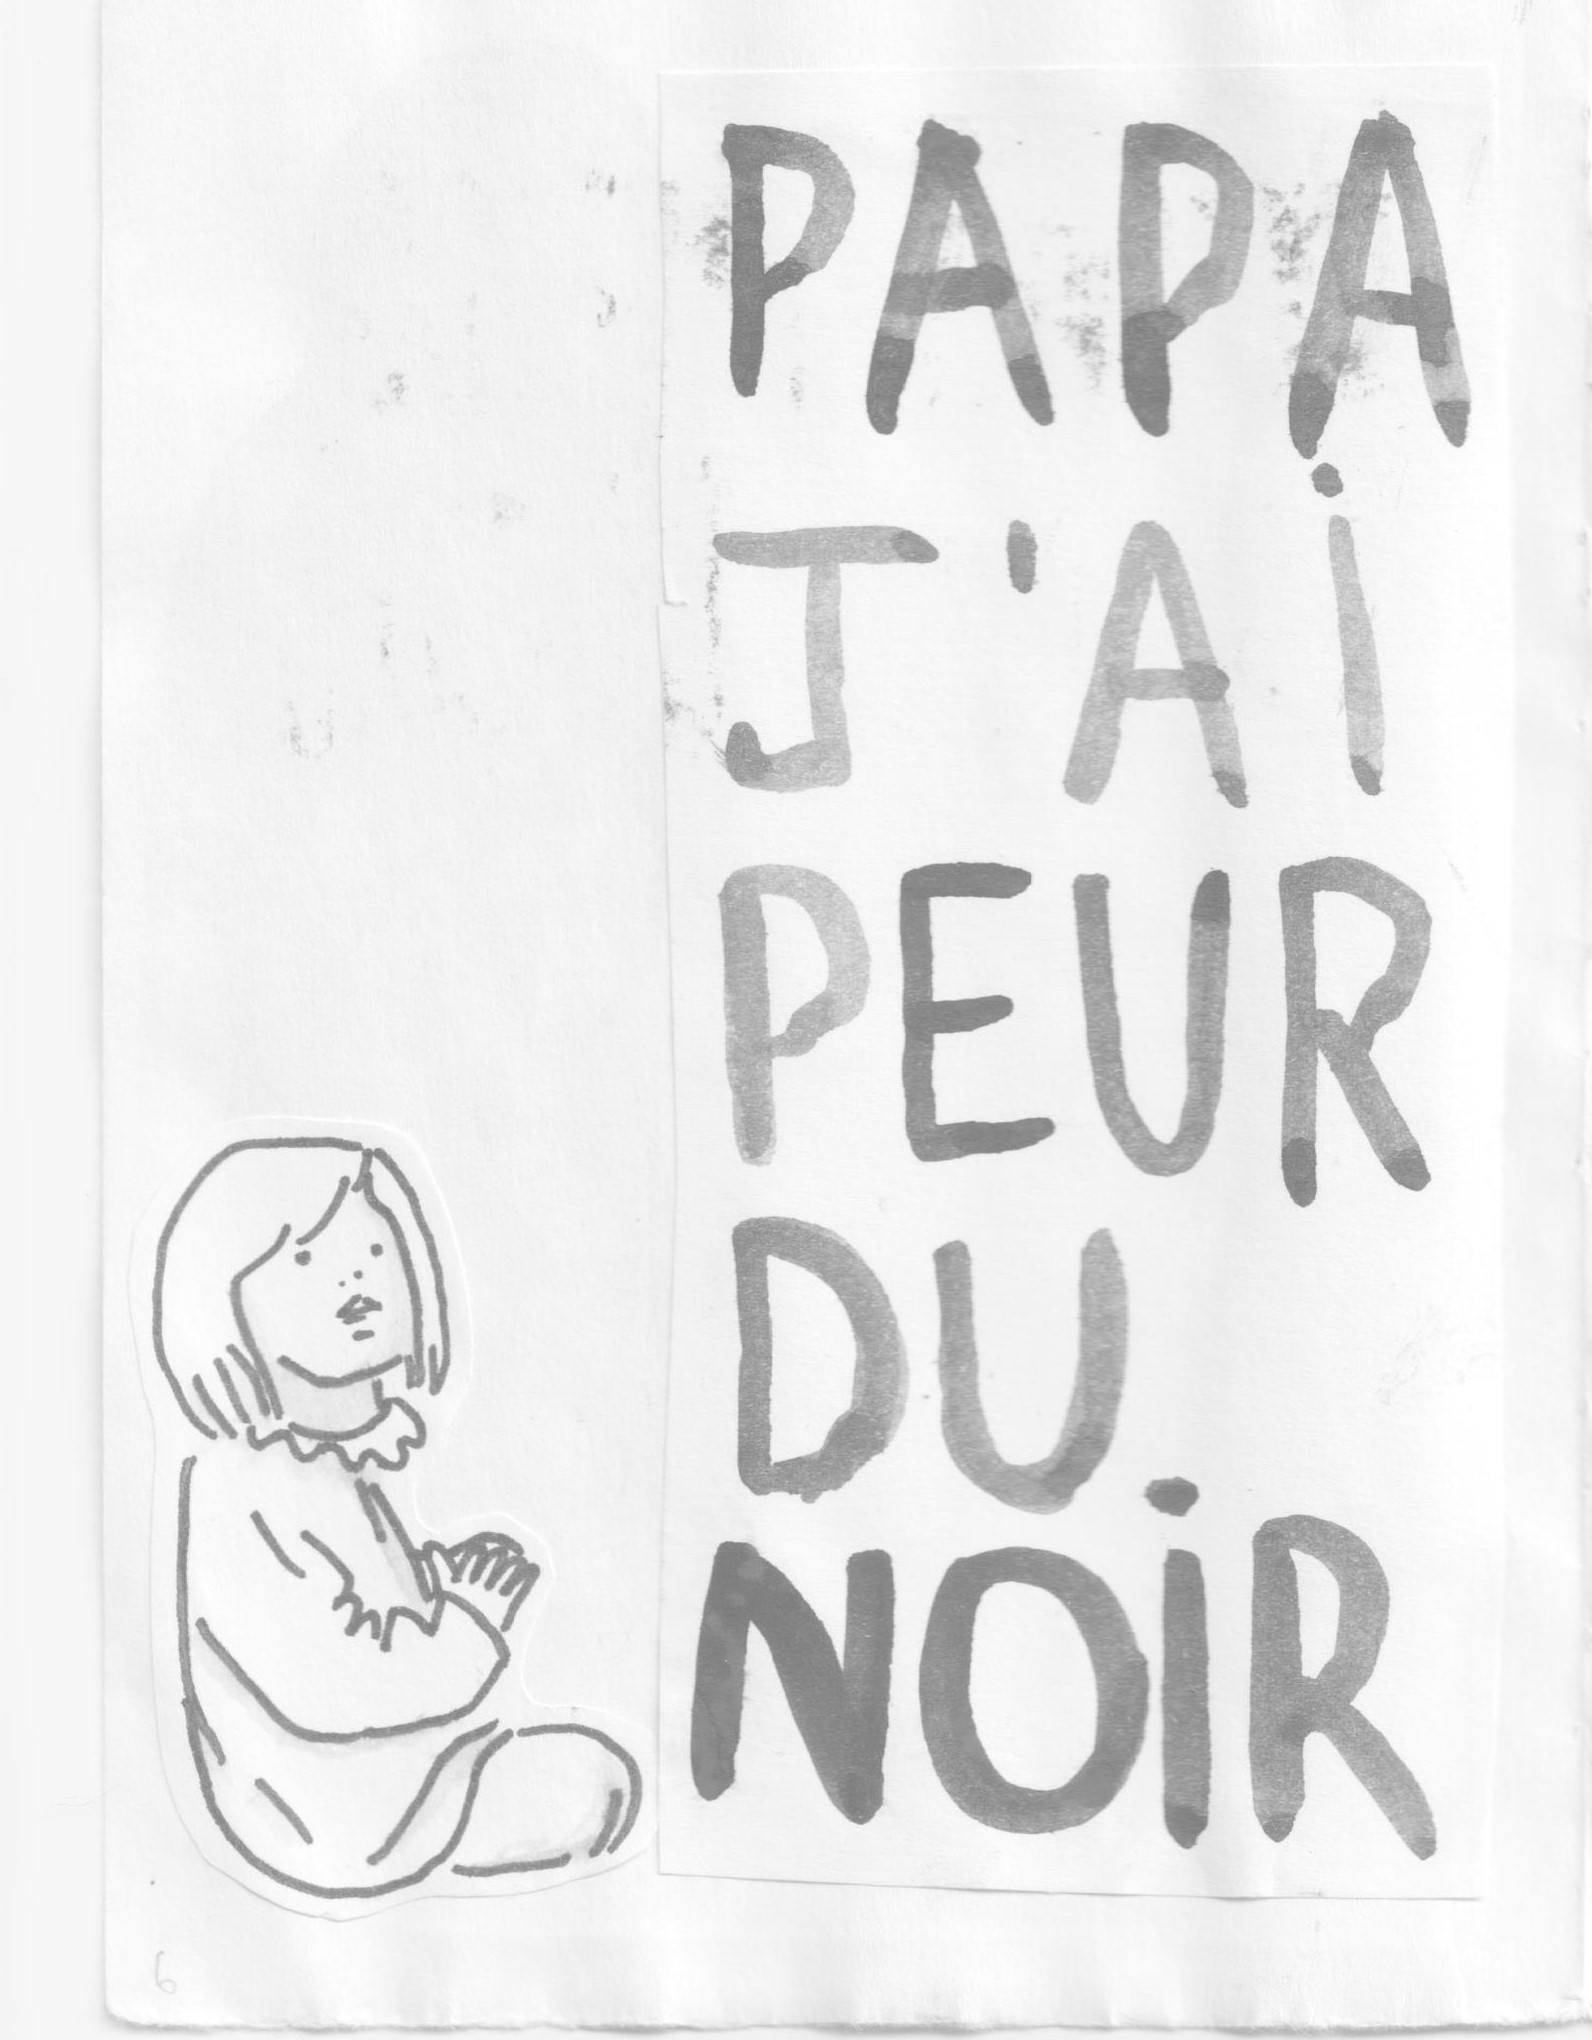 PAPA
J'Ai
PEUR
DU
NOiR
6